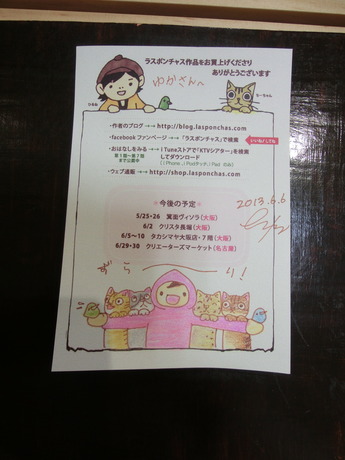 ラスポンチャス作品をお買上げくださり
ありがとうございます
ゆかさんへ
ひろね
らーちゃん
・作者のブログ →→ http://blog.lasponchas.com
・facebook ファンページ →→ 「ラスポンチャス」で検索
・おはなしをみる →→ i Tuneストアで「KTVシアター」を検索
してダウンロード
(i Phone ,i Podタッチ,i Pad のみ)
・ウェブ通販 →→ http://shop.lasponchas.com
※今後の予定※
5/25・26 箕面ヴィソラ(大阪)
6/2 クリスタ長堀(大阪)
6/5～10 タカシマヤ大阪店・7階(大阪)
6/29・30 クリエーターズマーケット(名古屋)
2013.6.6
ずら～り!